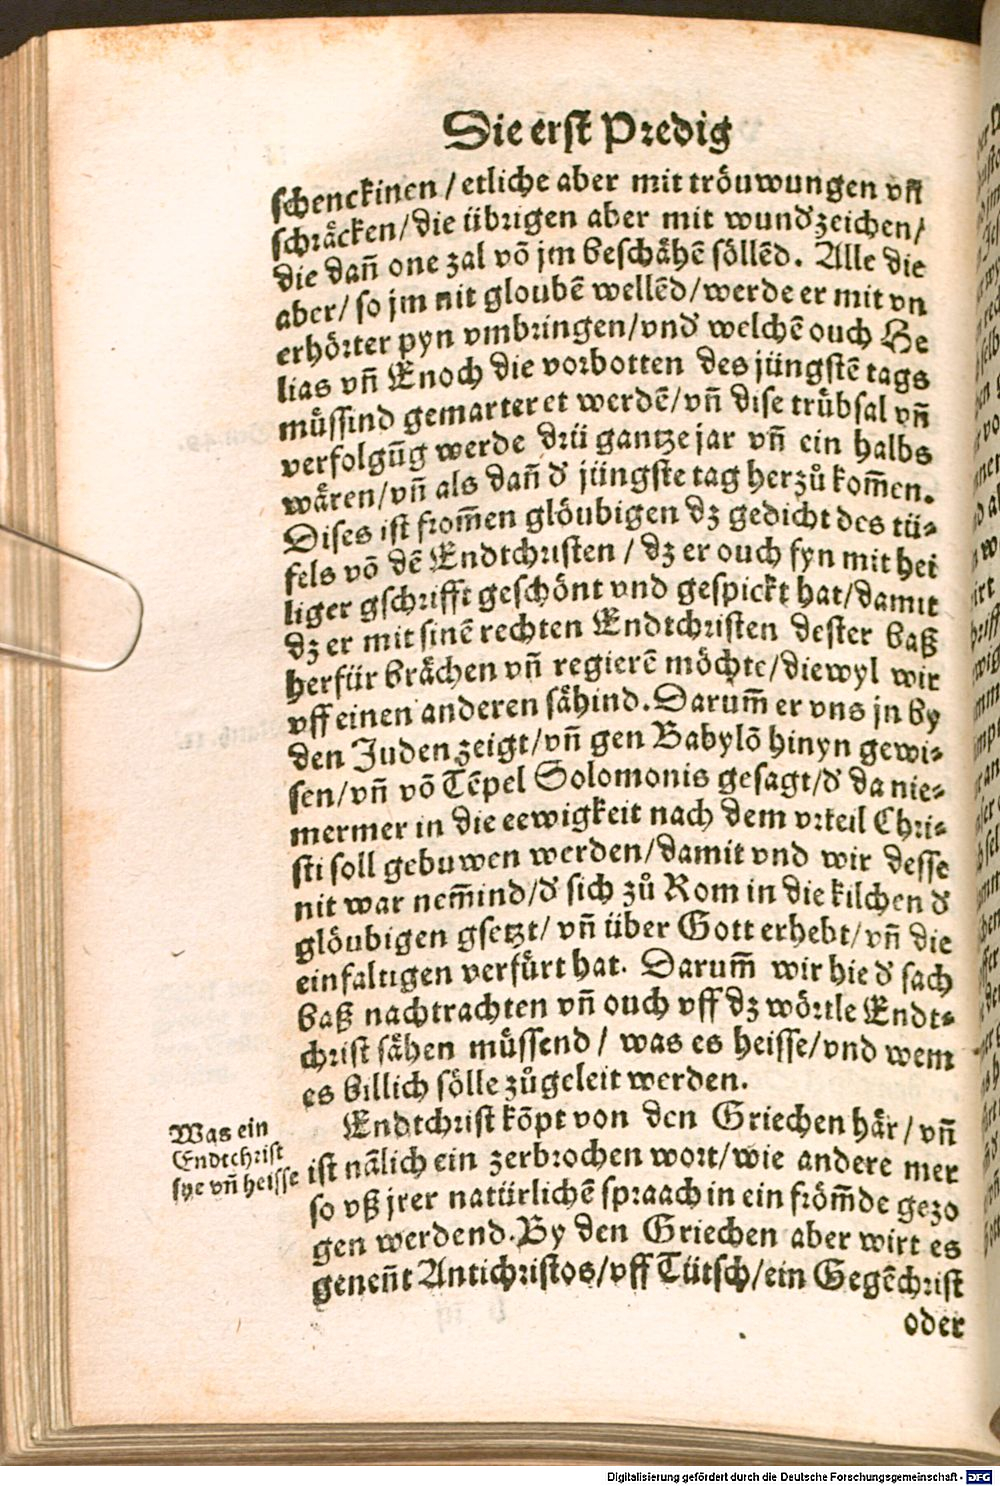 Die erst Predig
schenckinen / etliche aber mit tröuwungen vff
schräcken/die übrigen aber mit wundzeichen/
die dañ one zal võ jm beschähẽ söllẽd. Alle die
aber/ so jm nit gloubẽ wellẽd/werde er mit vn
erhörter pyn vmbringen/vnd welchẽ ouch He
lias vñ Enoch die vorbotten des jüngstẽ tags
müssind gemarteret werdẽ/vñ dise trübsal vñ
verfolgũg werde drü gantze jar vñ ein halbs
wären/vñ als dañ d' jüngste tag herzů kom̃en.
Dises ist from̃en glöubigen dz gedicht des tü-
fels võ dẽ Endtchristen / dz er ouch syn mit hei
liger gschrifft geschönt vnd gespickt hat/damit
dz er mit sinẽ rechten Endtchristen dester baß
herfür brächen vñ regierẽ möchte/diewyl wir
vff einen anderen sähind. Darum̃ er vns jn by
den Juden zeigt/vñ gen Babylõ hinyn gewi-
sen/vñ võ Tẽpel Solomonis gesagt/d' da nie-
mermer in die eewigkeit nach dem vrteil Chri-
sti soll gebuwen werden/damit vnd wir desse
nit war nem̃ind/d' sich zů Rom in die kilchen d'
glöubigen gsetzt/ vñ über Gott erhebt/vñ die
einfaltigen verfürt hat. Darum̃ wir hie d' sach
baß nachtrachten vñ ouch vff dz wörtle Endt-
christ sähen müssend / was es heisse/vnd wem
es billich sölle zůgeleit werden.
Was ein
Endtchrist
sye vñ heisse
Endtchrist kõpt von den Griechen här / vñ
ist nãlich ein zerbrochen wort/wie andere mer
so vß jrer natürlichẽ spraach in ein fröm̃de gezo
gen werdend. By den Griechen aber wirt es
genẽnt Antichristos/vff Tütsch/ein Gegẽchrist
oder
Digitalisierung gefördert durch die Deutsche Forschungsgemeinschaft - DFG